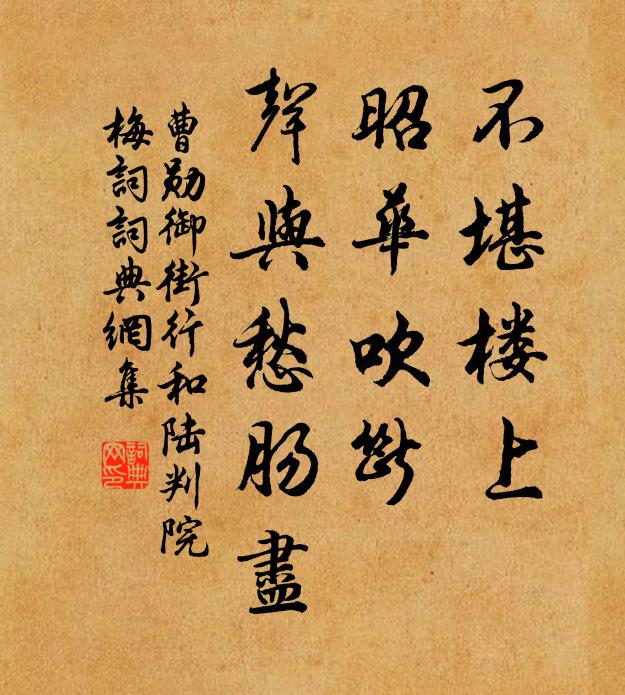 不堪楼上
昭華吹斷
聲與愁肠盡
曹勋御街行和陆判院
梅詞詞典網集
詞典